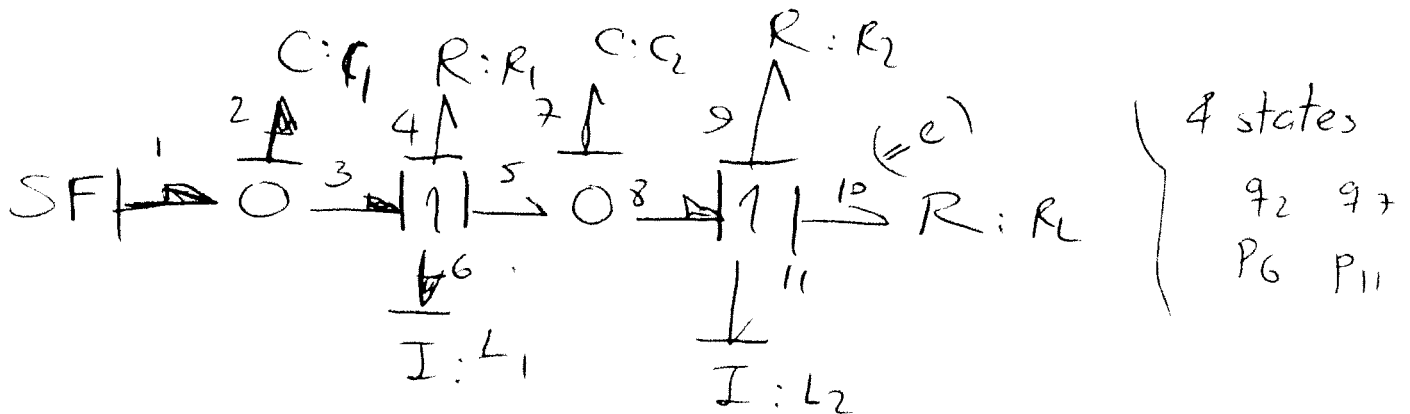 C:C₁ R:R₁ C:C₂ R:R₂
2 4 7 9 (=e)
SF 1 0 3 1 5 0 8 1 10 R:R_L
6 11
I:L₁ I:L₂
4 states
q₂ q₇
P₆ P₁₁